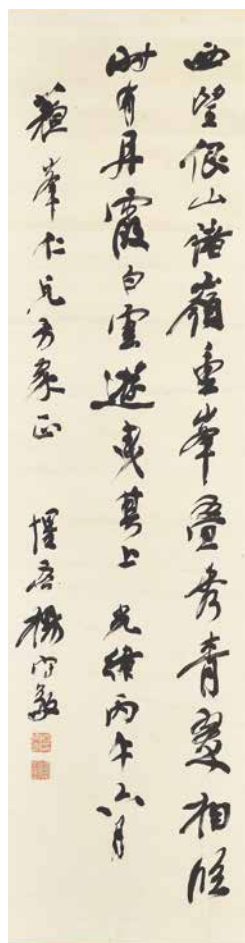 西望佷山諸嶺重峯疊秀青翠相臨
時有丹霞白雲遊曳其上 光緒丙午六月
蘇峯仁兄方家正 惺吾楊守敬